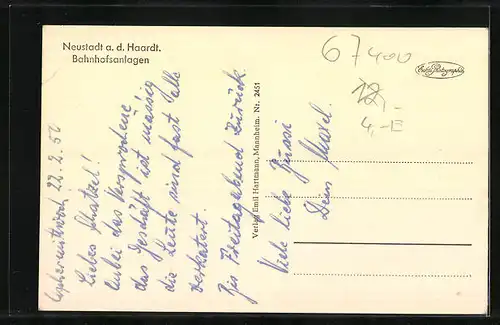 Neustadt a. d. Haardt.
Bahnhofsanlagen
67400
12,-
4,-E
Echte Photographie
Aschermittwoch 22.2.50
Liebes Schatzel!
Anbei das Versprochene
das Geschäft ist mässig
die Leute sind fast alle
verkatert.
Bis Freitagabend zurück.
Viele liebe Bussi
Dein
Verlag Emil Hartmann, Mannheim. Nr. 2451